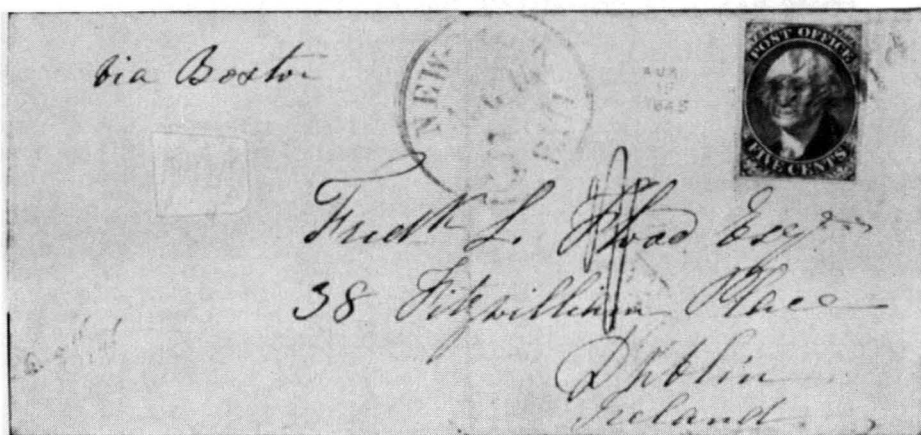 via Boston
NEW-
AUG
1845
POST OFFICE
FIVE CENTS
Fredk L. Flood Esqr
38 Fitzwilliam Place
Dublin
Ireland